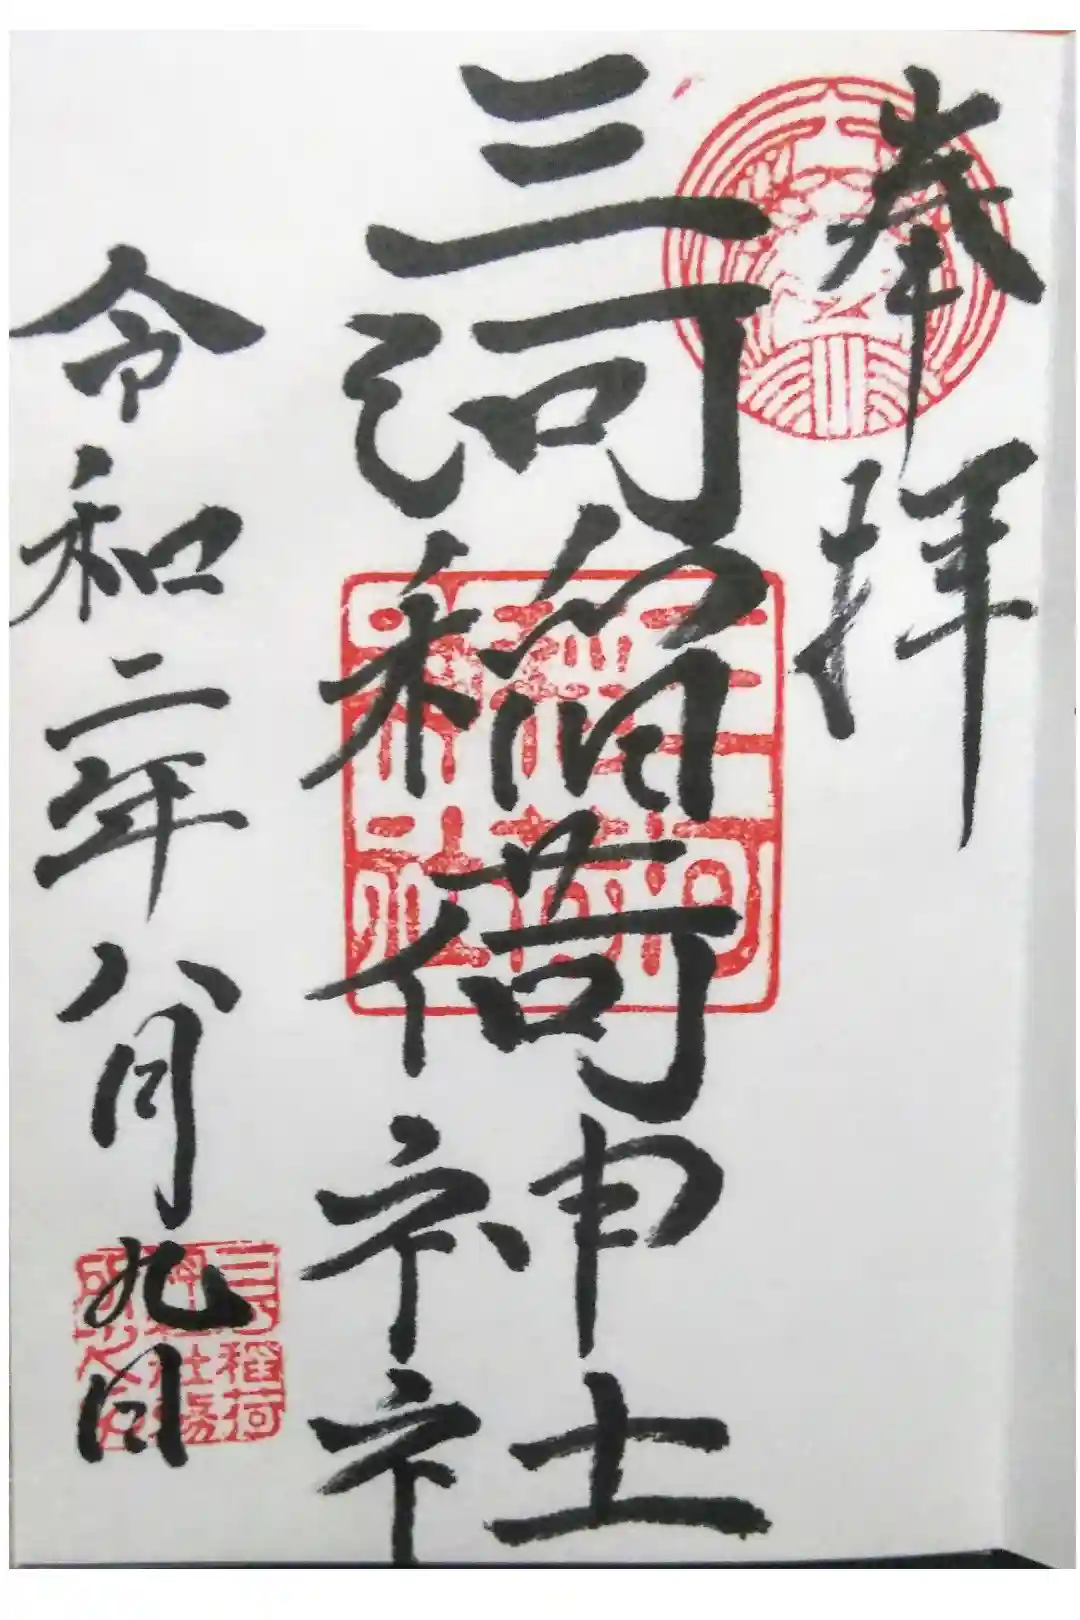 奉拝
三河稲荷神社
三河稲荷神社
令和二年八月九日
三河稲荷
神社社務
所之印